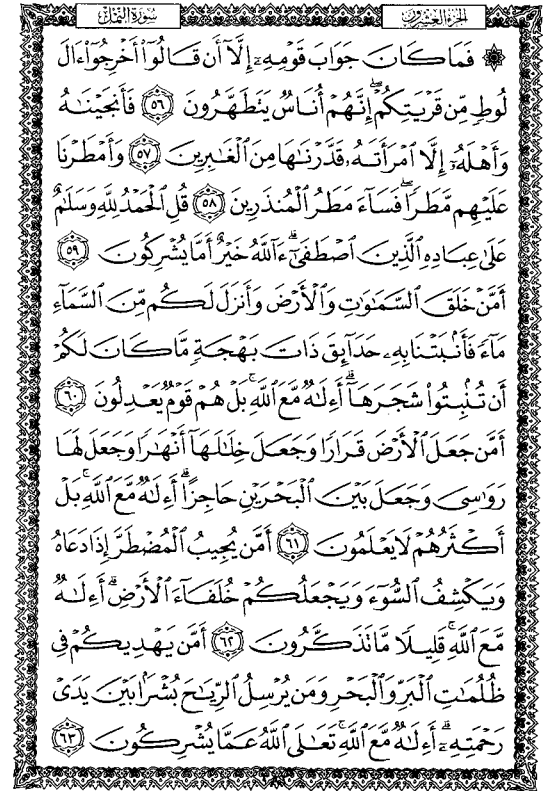 سورة النمل
الجزء العشرون
۞ فَمَا كَانَ جَوَابَ قَوْمِهِۦٓ إِلَّآ أَن قَالُوٓا۟ أَخْرِجُوٓا۟ ءَالَ
لُوطٍ مِّن قَرْيَتِكُمْ ۖ إِنَّهُمْ أُنَاسٌ يَتَطَهَّرُونَ ٥٦ فَأَنجَيْنَٰهُ
وَأَهْلَهُۥٓ إِلَّا ٱمْرَأَتَهُۥ قَدَّرْنَٰهَا مِنَ ٱلْغَٰبِرِينَ ٥٧ وَأَمْطَرْنَا
عَلَيْهِم مَّطَرًا ۖ فَسَآءَ مَطَرُ ٱلْمُنذَرِينَ ٥٨ قُلِ ٱلْحَمْدُ لِلَّهِ وَسَلَٰمٌ
عَلَىٰ عِبَادِهِ ٱلَّذِينَ ٱصْطَفَىٰٓ ۗ ءَآللَّهُ خَيْرٌ أَمَّا يُشْرِكُونَ ٥٩
أَمَّنْ خَلَقَ ٱلسَّمَٰوَٰتِ وَٱلْأَرْضَ وَأَنزَلَ لَكُم مِّنَ ٱلسَّمَآءِ
مَآءً فَأَنۢبَتْنَا بِهِۦ حَدَآئِقَ ذَاتَ بَهْجَةٍ مَّا كَانَ لَكُمْ
أَن تُنۢبِتُوا۟ شَجَرَهَآ ۗ أَءِلَٰهٌ مَّعَ ٱللَّهِ ۚ بَلْ هُمْ قَوْمٌ يَعْدِلُونَ ٦٠
أَمَّن جَعَلَ ٱلْأَرْضَ قَرَارًا وَجَعَلَ خِلَٰلَهَآ أَنْهَٰرًا وَجَعَلَ لَهَا
رَوَٰسِىَ وَجَعَلَ بَيْنَ ٱلْبَحْرَيْنِ حَاجِزًا ۗ أَءِلَٰهٌ مَّعَ ٱللَّهِ ۚ بَلْ
أَكْثَرُهُمْ لَا يَعْلَمُونَ ٦١ أَمَّن يُجِيبُ ٱلْمُضْطَرَّ إِذَا دَعَاهُ
وَيَكْشِفُ ٱلسُّوٓءَ وَيَجْعَلُكُمْ خُلَفَآءَ ٱلْأَرْضِ ۗ أَءِلَٰهٌ
مَّعَ ٱللَّهِ ۚ قَلِيلًا مَّا تَذَكَّرُونَ ٦٢ أَمَّن يَهْدِيكُمْ فِى
ظُلُمَٰتِ ٱلْبَرِّ وَٱلْبَحْرِ وَمَن يُرْسِلُ ٱلرِّيَٰحَ بُشْرًۢا بَيْنَ يَدَىْ
رَحْمَتِهِۦٓ ۗ أَءِلَٰهٌ مَّعَ ٱللَّهِ ۚ تَعَٰلَى ٱللَّهُ عَمَّا يُشْرِكُونَ ٦٣